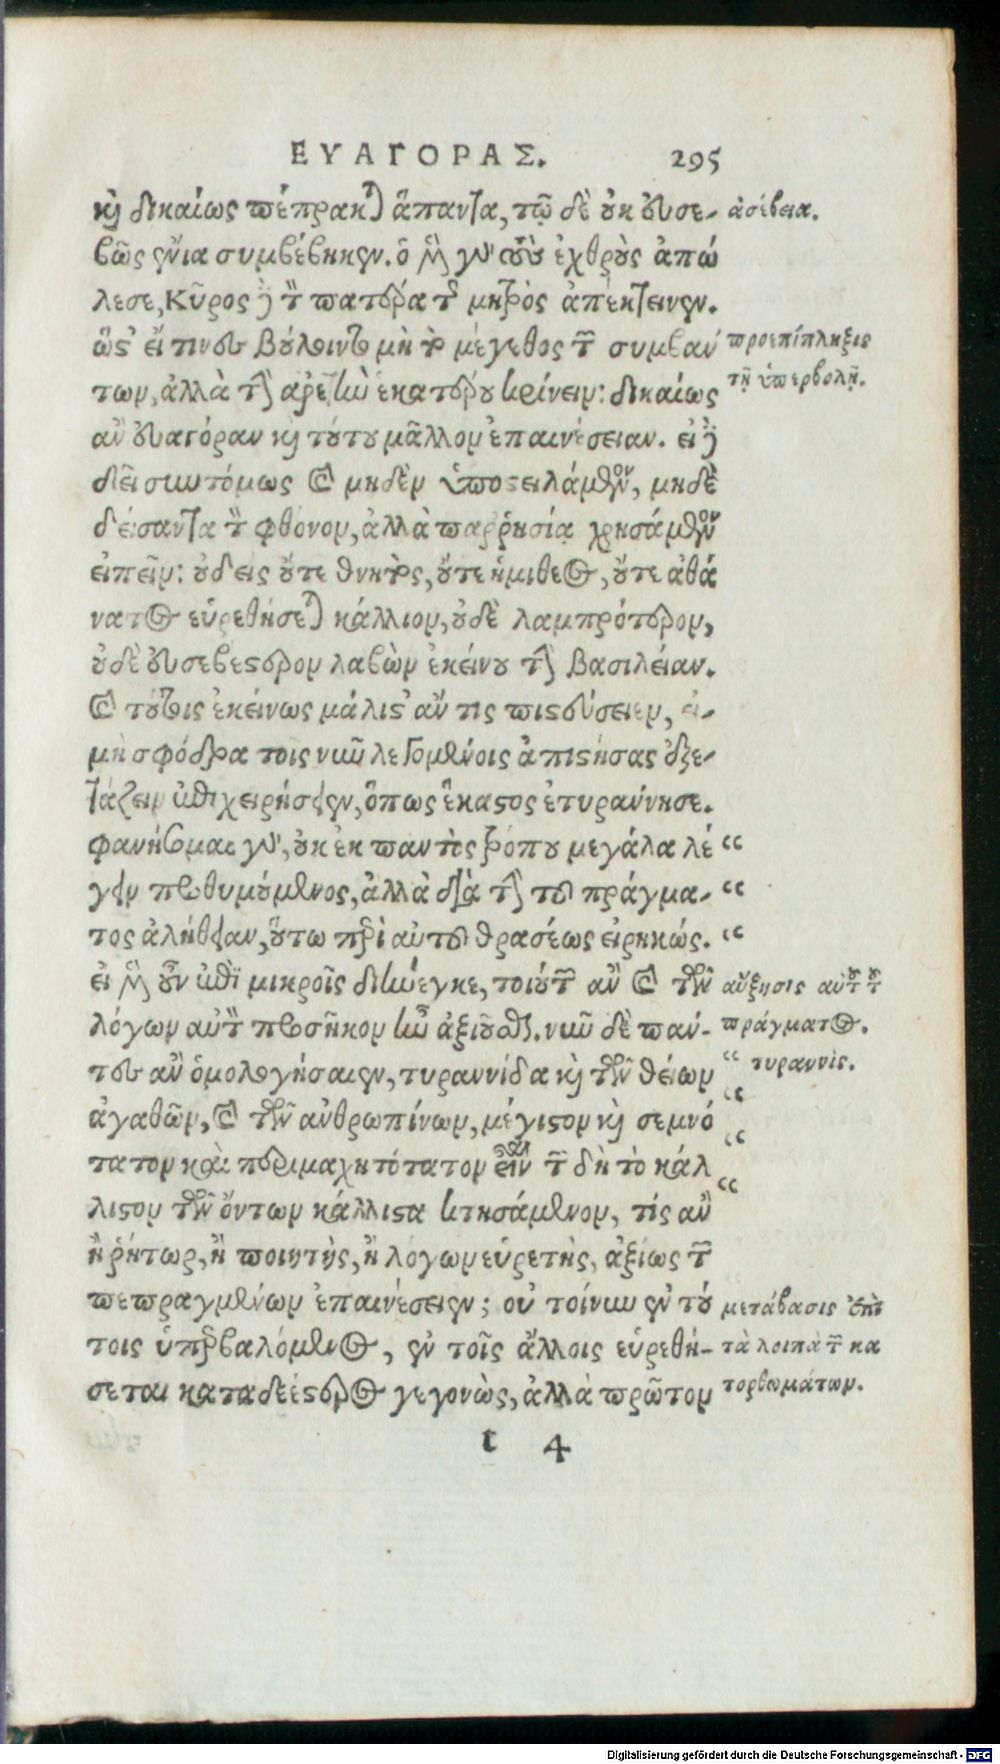 ΕΥΑΓΟΡΑΣ. 295
καὶ δικαίως πέπρακται ἅπαντα, τῷ δὲ οὐκ εὐσε- ἀσέβεια.
βῶς ἔνια συμβέβηκεν. ὁ μὲν γὰρ τοὺς ἐχθροὺς ἀπώ
λεσε, Κῦρος δὲ τὸν πατέρα τῆς μητρὸς ἀπέκτεινεν.
ὥστ' εἴ τινες βούλοιντο μὴ τὸ μέγεθος τῶν συμβάν προεπίπληξις
των, ἀλλὰ τὴν ἀρετὴν ἑκατέρου κρίνειν: δικαίως τῇ ὑπερβολῇ.
ἂν εὐαγόραν καὶ τούτου μᾶλλον ἐπαινέσειαν. εἰ δὲ
δεῖ συντόμως καὶ μηδὲν ὑποστειλάμενον, μηδὲ
δείσαντα τὸν φθόνον, ἀλλὰ παρρησίᾳ χρησάμενον
εἰπεῖν: οὐδεὶς οὔτε θνητὸς, οὔτε ἡμίθεος, οὔτε ἀθά
νατος εὑρεθήσεται κάλλιον, οὐδὲ λαμπρότερον,
οὐδὲ εὐσεβέστερον λαβὼν ἐκείνου τὴν βασιλείαν.
καὶ τούτοις ἐκείνως μάλιστ' ἄν τις πιστεύσειεν, εἰ-
μὴ σφόδρα τοῖς νῦν λεγομένοις ἀπιστήσας ἐξε-
τάζειν ἐπιχειρήσειεν, ὅπως ἕκαστος ἐτυράννησε.
φανήσομαι γὰρ, οὐκ ἐκ παντὸς τρόπου μεγάλα λέ “
γειν προθυμούμενος, ἀλλὰ διὰ τὴν τοῦ πράγμα- “
τος ἀλήθειαν, οὕτω περὶ αὐτοῦ θρασέως εἰρηκώς. “
εἰ μὲν οὖν ἐπὶ μικροῖς διήνεγκε, τοιούτων ἂν καὶ τῶν αὔξησις αὐτοῦ τοῦ
λόγων αὐτὸν προσῆκον ἦν ἀξιοῦσθαι. νῦν δὲ πάν- πράγματος.
τες ἂν ὁμολογήσαιεν, τυραννίδα καὶ τῶν θείων “ τυραννίς.
ἀγαθῶν, καὶ τῶν ἀνθρωπίνων, μέγιστον καὶ σεμνό “
τατον καὶ περιμαχητότατον εἶναι τὸν δὴ τὸ κάλ “
λιστον τῶν ὄντων κάλλιστα κτησάμενον, τίς ἂν “
ἢ ῥήτωρ, ἢ ποιητὴς, ἢ λόγων εὑρετὴς, ἀξίως τῶν
πεπραγμένων ἐπαινέσειεν; οὐ τοίνυν ἐν τού μετάβασις ἐπὶ
τοις ὑπερβαλόμενος, ἐν τοῖς ἄλλοις εὑρεθή- τὰ λοιπὰ τῶν κα
σεται καταδεέστερος γεγονὼς, ἀλλὰ πρῶτον τορθωμάτων.
t 4
Digitalisierung gefördert durch die Deutsche Forschungsgemeinschaft - DFG